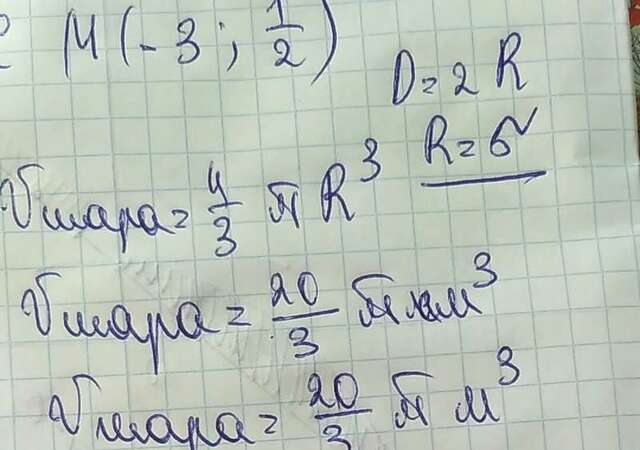 M (-3; 1/2)
D = 2 R
R = 6
Vшара = 4/3 π R³
Vшара = 20/3 π км³
Vшара = 20/3 π м³